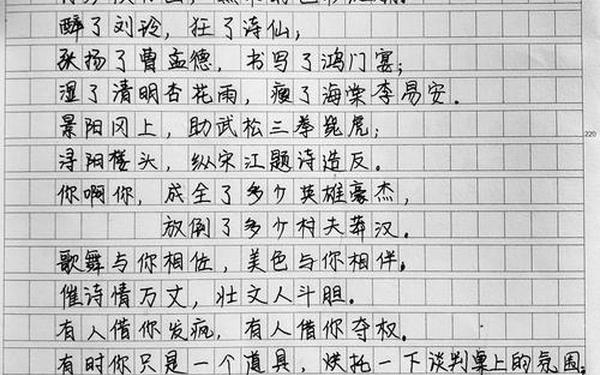 醉了刘玲，狂了诗仙；
张扬了曹孟德，书写了鸿门宴；
湿了清明杏花雨，瘦了海棠李易安。
景阳冈上，助武松三拳毙虎；
浔阳楼头，纵宋江题诗造反。
你啊你，成全了多少英雄豪杰，
放倒了多少村夫莽汉。
220
歌舞与你相伍，美色与你相伴。
催诗情万丈，壮文人斗胆。
有人借你发疯，有人借你夺权。
有时你只是一个道具，烘托一下谈判桌上的氛围；